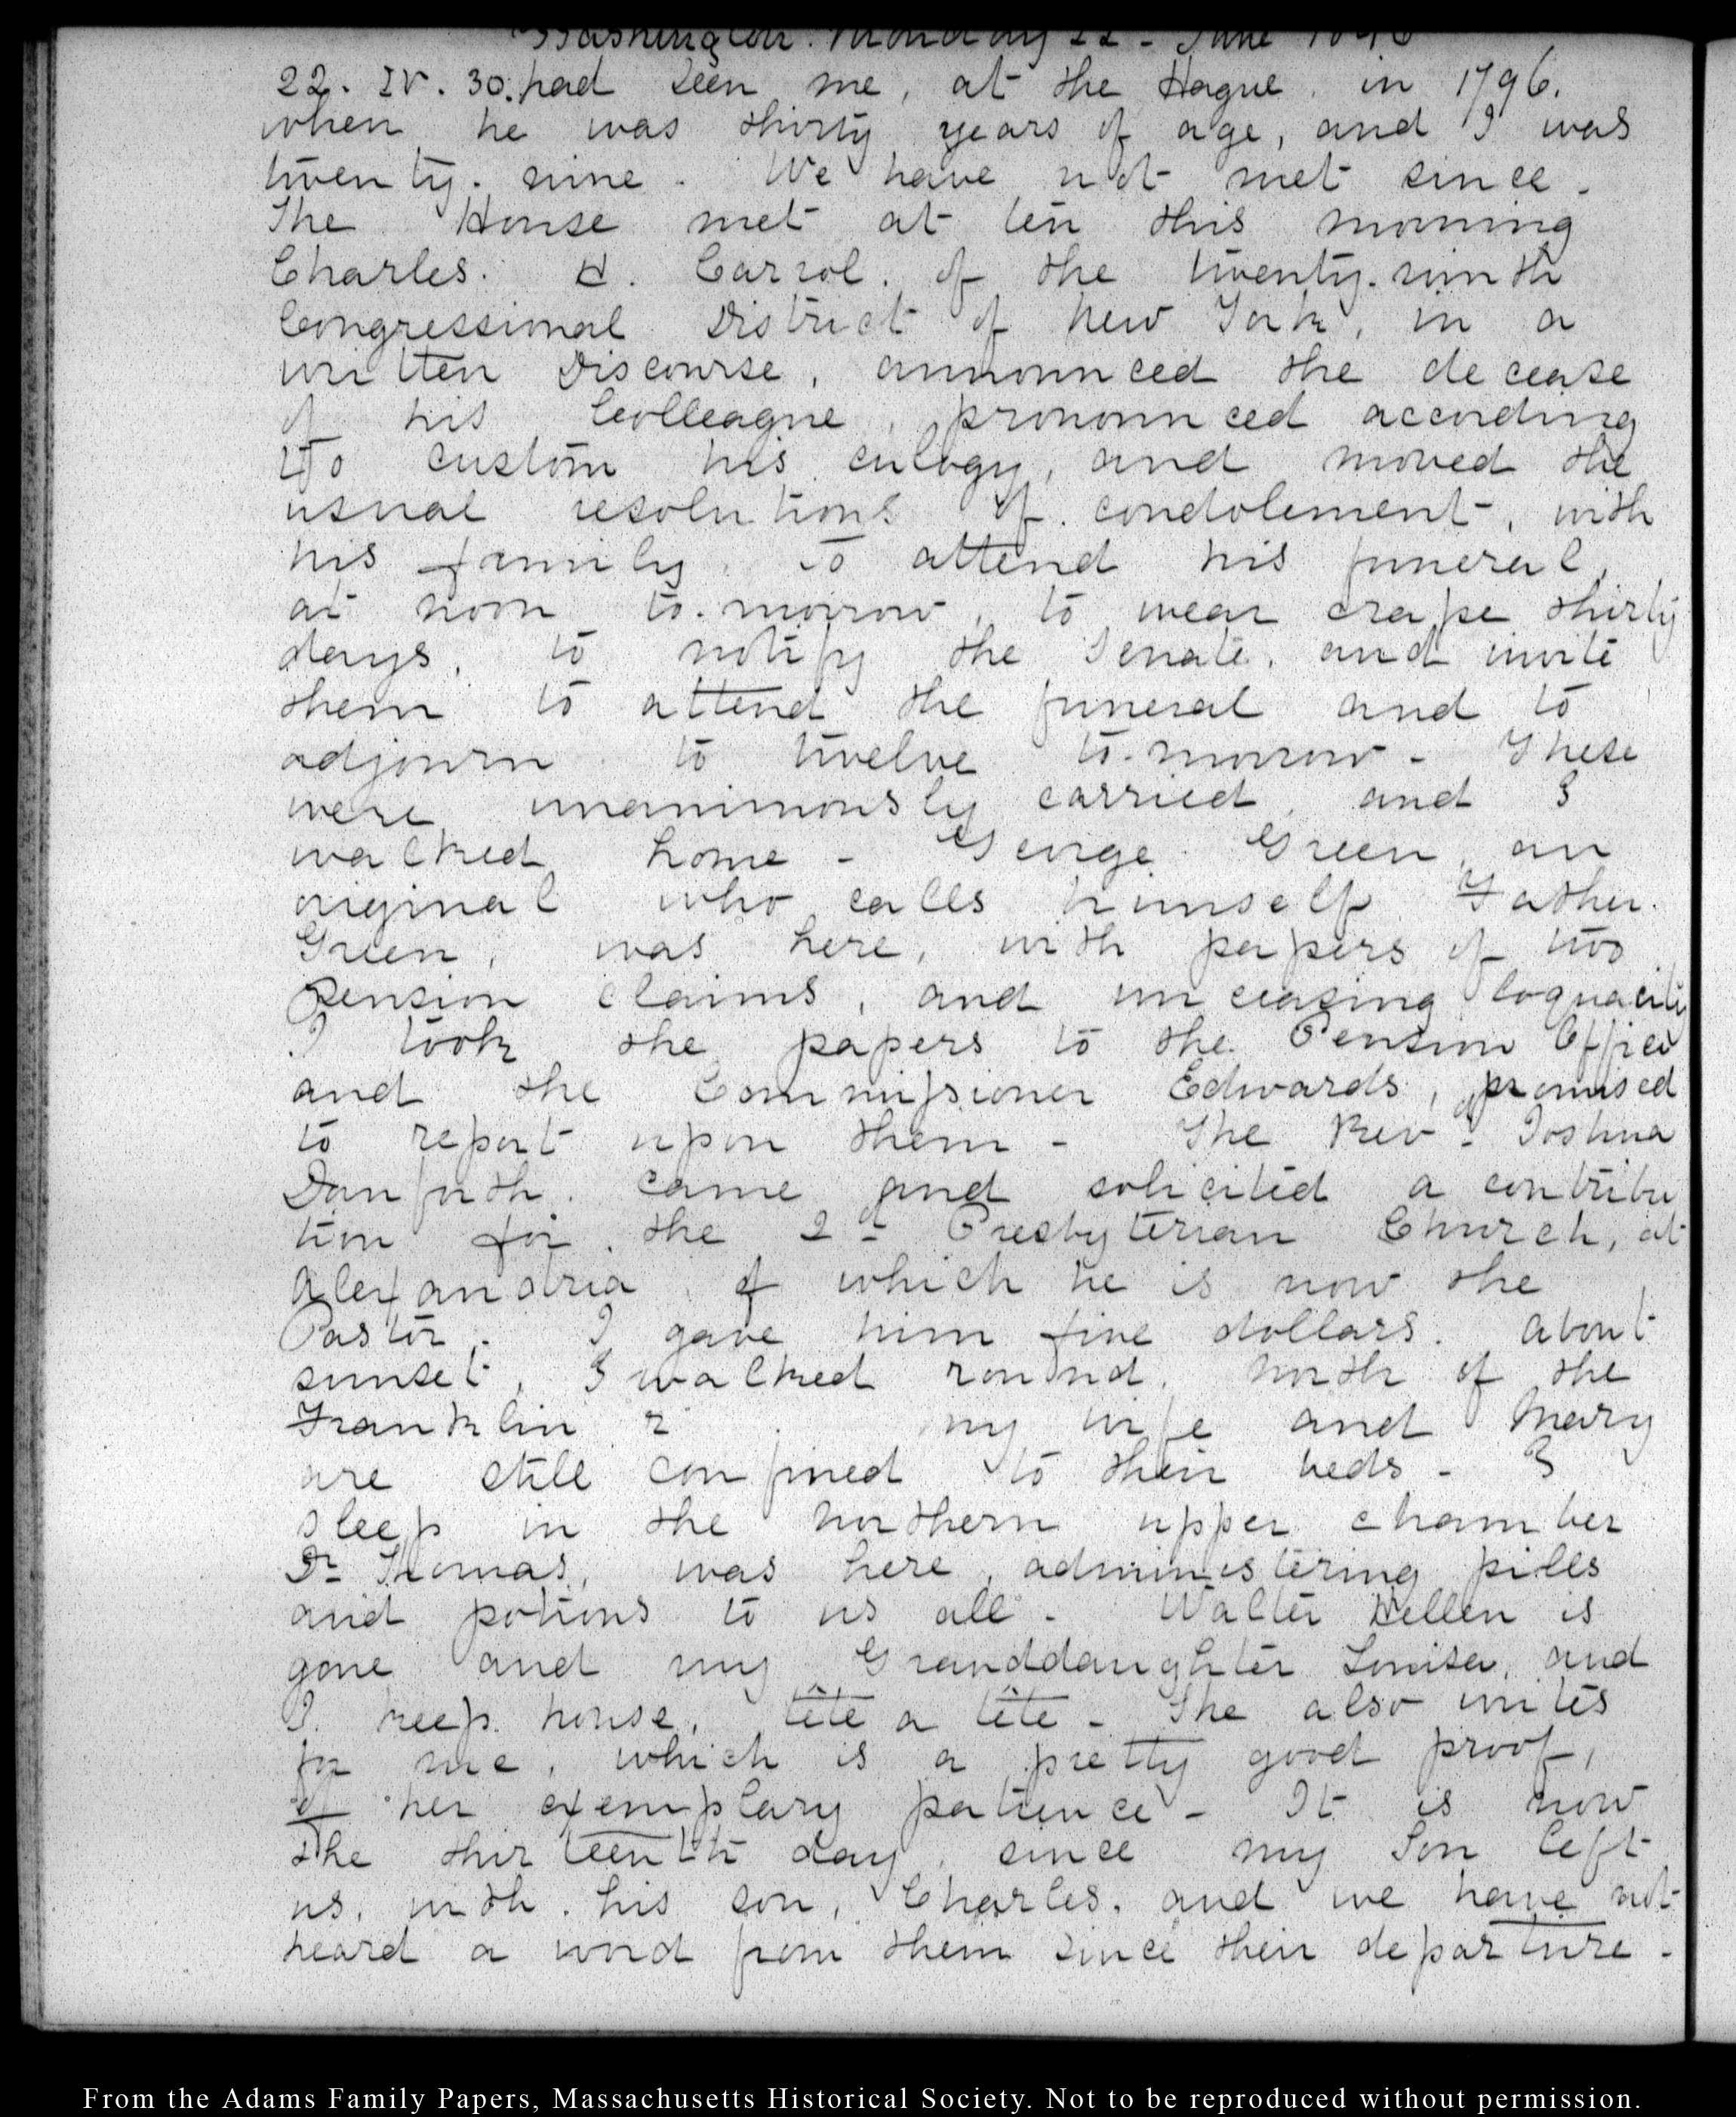 Washington. Monday 22 - June 1846
22. IV. 30. had seen me, at the Hague. in 1796.
when he was thirty years of age, and I was
twenty. nine. We have not met since -
The House met at ten this morning
Charles. H. Carrol. of the twenty. ninth
Congressional District of New York, in a
written Discourse, announced the decease
of his Colleague, pronounced according
to custom his eulogy, and moved the
usual resolutions of. condolement, with
his family. to attend his funeral,
at noon to-morrow, to wear crape thirty
days, to notify the Senate. and invite
them to attend the funeral and to
adjourn to twelve to-morrow - These
were unanimously carried, and I
walked home - George Green, an
original who calls himself Father.
Green, was here, with papers of two
Pension claims, and unceasing loquacity
I took the papers to the Pension Office
and the Commissioner Edwards, promised
to report upon them - The Revd. Joshua
Danforth. came and solicited a contribu
tion for. the 2d Presbyterian Church, at
Alexandria, of which he is now the
Pastor. I gave him five dollars. About
sunset, I walked round, north of the
Franklin my wife and Mary
are still confined to their beds - I
sleep in the northern upper chamber
Dr Thomas, was here, administering pills
and potions to us all - Walter Hellen is
gone and my Granddaughter Louisa, and
I. keep. house, tête a tête - She also writes
for me, which is a pretty good proof,
of her exemplary patience - It is now
the thirteenth day, since my Son left
us, with. his son, Charles. and we have not
heard a word from them since their departure -
From the Adams Family Papers, Massachusetts Historical Society. Not to be reproduced without permission.